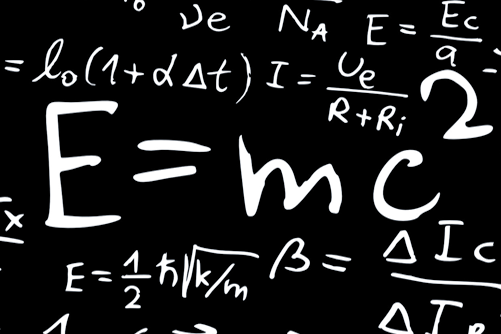 υe N_A E = Ec/a
= l₀(1+αΔt) I = Ue/(R+Ri)
E=mc²
x
E=½ħ√k/m β= ΔIc/ΔI